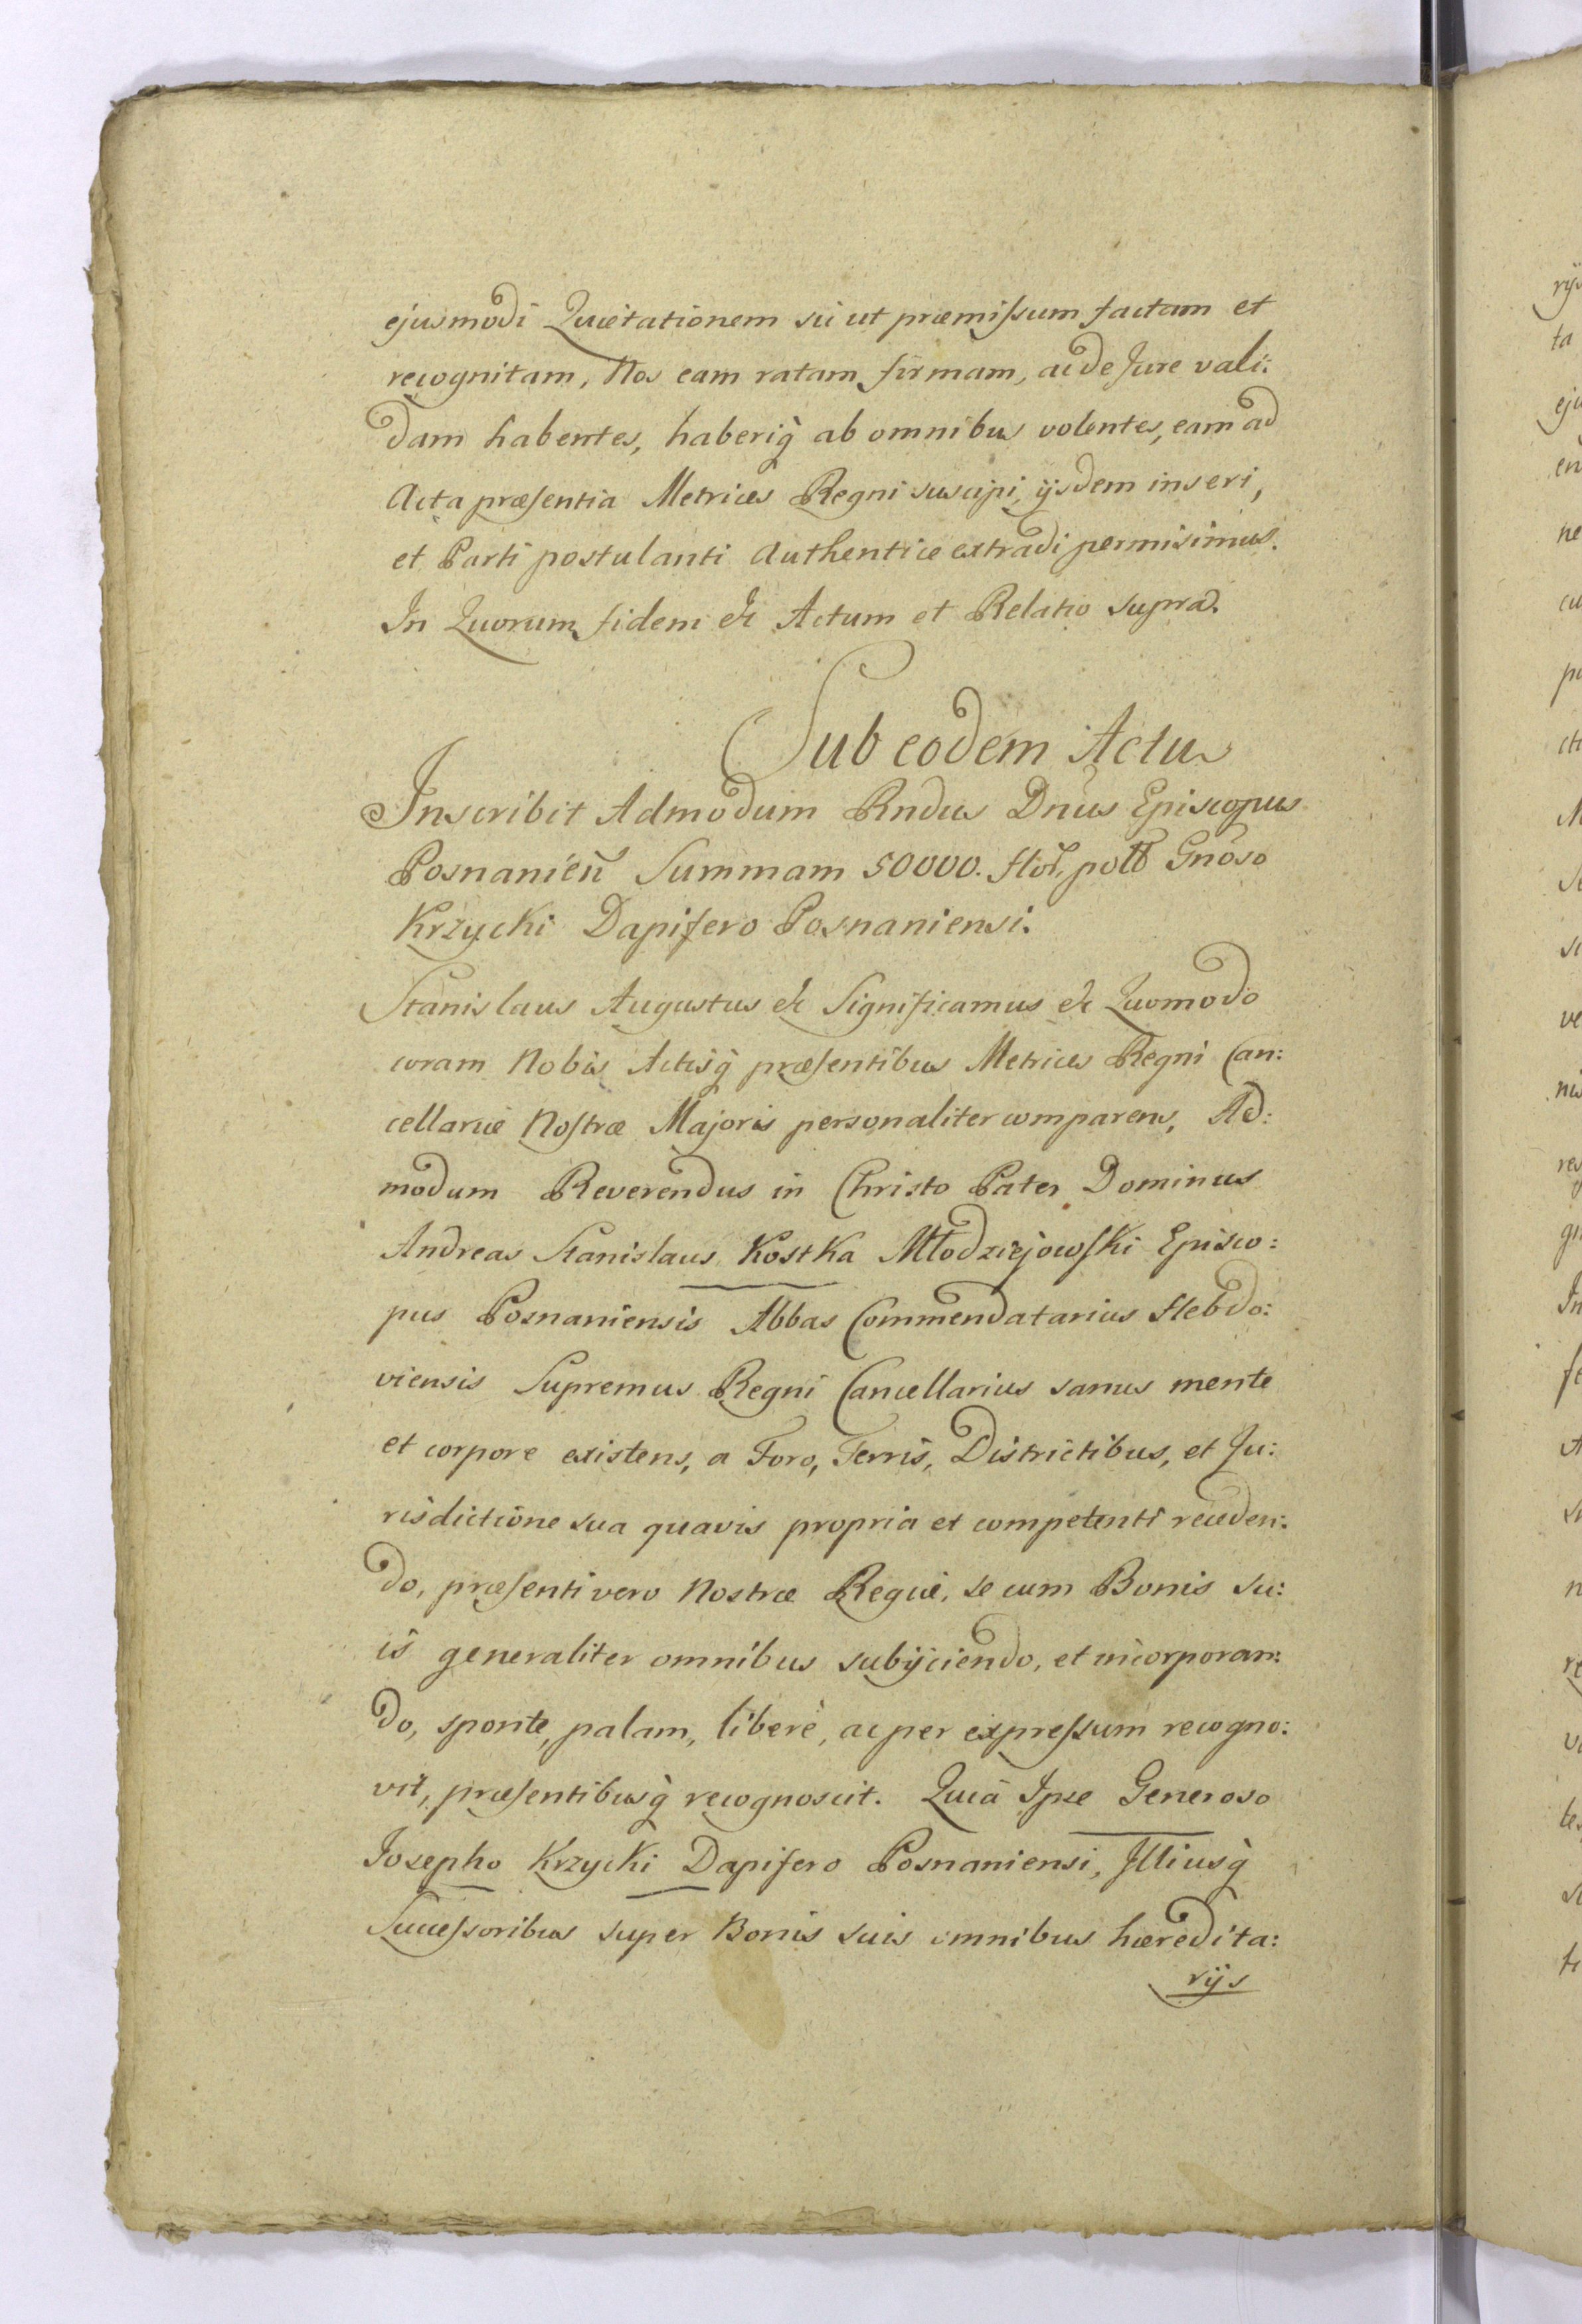 ejusmodi Quietationem sic ut præmissum factam et
recognitam, Nos eam ratam firmam, ac de Jure vali:
dam habentes, haberiq̀ ab omnibus volentes, eam ad
Acta præsentia Metrices Regni suscipi, ijsdem inseri,
et Parti postulanti Authentice extradi permisimus.
In Quorum fidem &c Actum et Relatio supra.
Sub eodem Actu
Inscribit Admodum Rndus Dnus Episcopus
Posnanień Summam 50000. flor, poll Gnoso
Krzycki Dapifero Posnaniensi.
Stanislaus Augustus &c Significamus &c Quomodo
coram Nobis Actisq̀ præsentibus Metrices Regni Can:
cellariæ Nostræ Majoris personaliter comparens, Ad:
modum Reverendus in Christo Pater Dominus
Andreas Stanislaus Kostka Młodziejowski Episco:
pus Posnaniensis Abbas Commendatarius Hebdo:
viensis Supremus Regni Cancellarius sanus mente
et corpore existens, a Foro, Terris, Districtibus, et Ju:
risdictione sua quavis propria et competenti receden:
do, præsenti vero Nostræ Regiæ, se cum Bonis su:
is generaliter omnibus subijciendo, et incorporan:
do, sponte, palam, liberè, ac per expressum recogno:
vit, præsentibusq̀ recognoscit. Quia Ipse Generoso
Josepho Krzycki Dapifero Posnaniensi, Illiusq̀
Successoribus super Bonis suis omnibus hæredita:
rijs